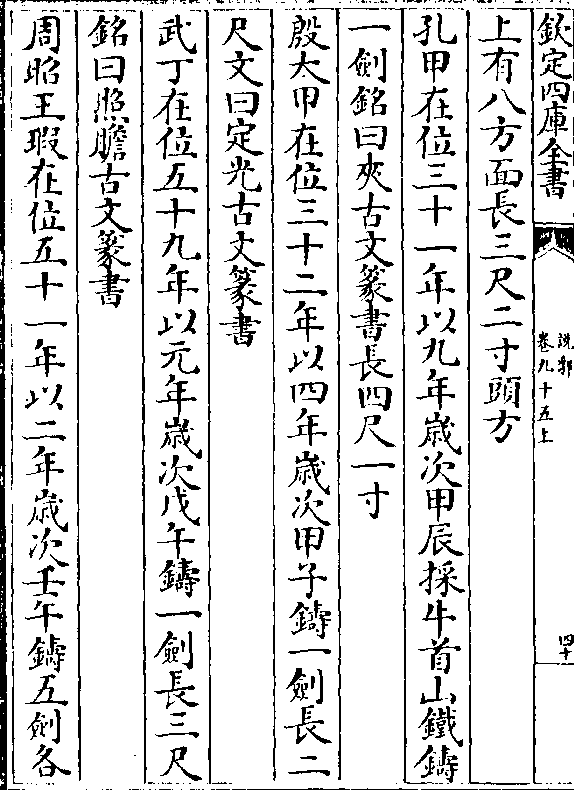 欽定四庫全書
說郛
卷九十五上
四十一
上有八方面長三尺二寸頭方
孔甲在位三十一年以九年歲次甲辰採牛首山鐵鑄
一劍銘曰夾古文篆書長四尺一寸
殷太甲在位三十二年以四年歲次甲子鑄一劍長二
尺文曰定光古文篆書
武丁在位五十九年以元年歲次戊午鑄一劍長三尺
銘曰照膽古文篆書
周昭王瑕在位五十一年以二年歲次壬午鑄五劍各